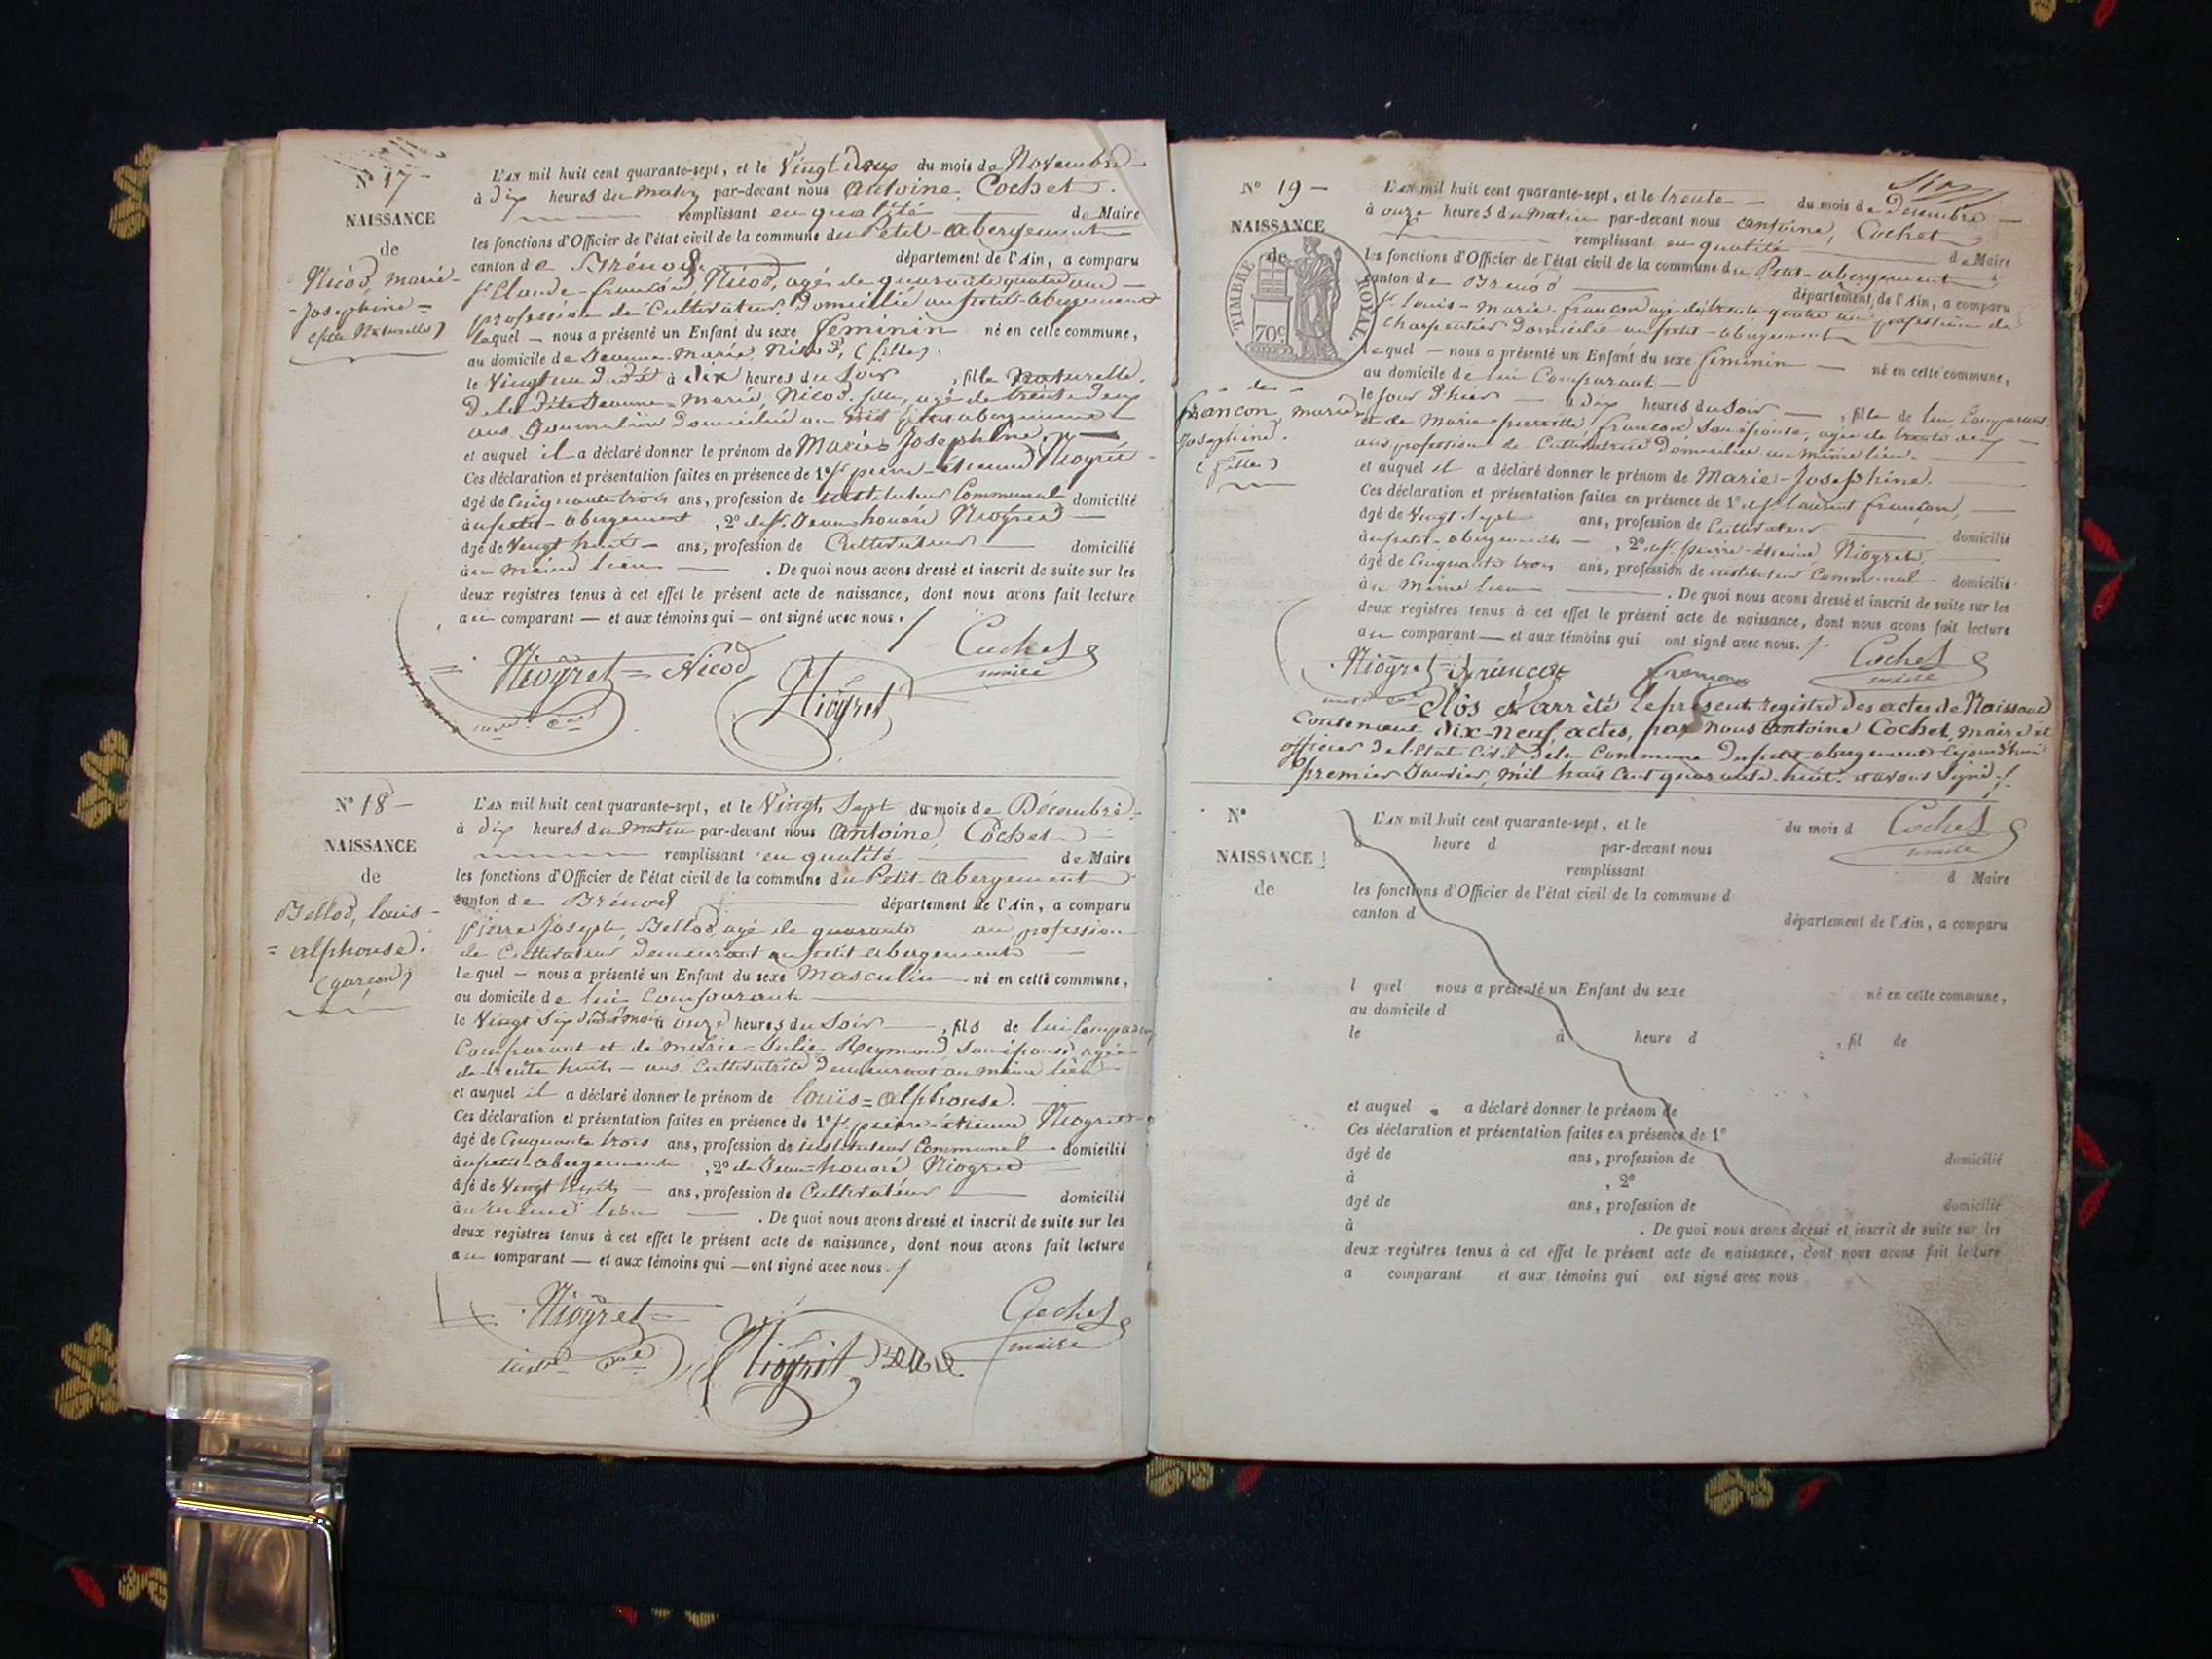 N° 17 -
NAISSANCE
de
Nicod, marie-
- Josephine =
(fille Naturelle)
L'AN mil huit cent quarante-sept, et le Vingt deux du mois de Novembre -
à dix heures du matin par-devant nous Antoine Cochet
remplissant en qualité de Maire
les fonctions d'Officier de l'état civil de la commune du Petit-abergement
canton de Brénod département de l'Ain, a comparu
sr Claude-françois Nicod, agé de quarante quatre ans -
profession de Cultivateur, Domicilié au petit abergement
lequel - nous a présenté un Enfant du sexe feminin né en cette commune,
au domicile de Jeanne-Marie Nicod, (fille)
le Vingt un dudit à dix heures du Soir , fille naturelle
de la dite Jeanne-Marie Nicod fille, agé de trente deux
ans Journalière domiciliée au dit petit abergement
et auquel il a déclaré donner le prénom de Marie-Josephine
Ces déclaration et présentation faites en présence de 1° sr pierre-étienne Niogret
âgé de Cinquante trois ans, profession de instituteur Communal domicilié
à au petit-abergement , 2° de sr Jean honoré Niogret
âgé de Vingt huit - ans, profession de Cultivateur domicilié
à au même lieu . De quoi nous avons dressé et inscrit de suite sur les
deux registres tenus à cet effet le présent acte de naissance, dont nous avons fait lecture
au comparant - et aux témoins qui - ont signé avec nous ./
Niogret = Nicod
Niogret
Cochet
maire
N° 18 -
NAISSANCE
de
Bellod, louis -
= alphonse.
(garçon)
L'AN mil huit cent quarante-sept, et le Vingt Sept du mois de Décembre -
à dix heures du matin par-devant nous Antoine Cochet
remplissant en qualité de Maire
les fonctions d'Officier de l'état civil de la commune du Petit-abergement
canton de Brénod département de l'Ain, a comparu
pierre Joseph Bellod agé de quarante ans profession
de Cultivateur demeurant au petit abergement
lequel - nous a présenté un Enfant du sexe Masculin né en cette commune,
au domicile de lui Comparant
le Vingt Six du dit mois à onze heures du Soir , fils de lui
Comparant et de marie-Julie Reymond son épouse, agée
de trente huit - ans Cultivatrice demeurant au même lieu
et auquel il a déclaré donner le prénom de louis = alphonse.
Ces déclaration et présentation faites en présence de 1° sr pierre-étienne Niogret
âgé de Cinquante trois ans, profession de instituteur Communal domicilié
à au petit-abergement , 2° de Jean-honoré Niogret
âgé de Vingt huit ans, profession de Cultivateur domicilié
à au même lieu . De quoi nous avons dressé et inscrit de suite sur les
deux registres tenus à cet effet le présent acte de naissance, dont nous avons fait lecture
au comparant - et aux témoins qui - ont signé avec nous ./
Niogret =
Niogret Bellod
Cochet
maire
N° 19 -
NAISSANCE
de
TIMBRE ROYAL
70c
- de -
françon, marie
Josephine.
(fille)
L'AN mil huit cent quarante-sept, et le trente - du mois de Décembre -
à onze heures du matin par-devant nous Antoine Cochet
remplissant en qualité de Maire
les fonctions d'Officier de l'état civil de la commune du Petit-abergement
canton de Brénod département de l'Ain, a comparu
sr louis-marie françon agé de trente quatre ans profession de
Charpentier domicilié au petit-abergement
lequel - nous a présenté un Enfant du sexe feminin - né en cette commune,
au domicile de lui Comparant
le jour d'hier - à dix heures du Soir - , fille de lui Comparant
et de Marie-pierrette françon son épouse, agée de trente deux -
ans profession de Cultivatrice domiciliée au même lieu.
et auquel il a déclaré donner le prénom de Marie-Josephine.
Ces déclaration et présentation faites en présence de 1° sr laurent françon,
âgé de Vingt Sept ans, profession de Cultivateur domicilié
à au petit-abergement - , 2° sr pierre-étienne Niogret
âgé de Cinquante trois ans, profession de instituteur Communal domicilié
à au même lieu . De quoi nous avons dressé et inscrit de suite sur les
deux registres tenus à cet effet le présent acte de naissance, dont nous avons fait lecture
au comparant - et aux témoins qui ont signé avec nous. /.
Niogret = françon françon Cochet
maire
Clos et arrêté le présent registre des actes de Naissance
Contenant dix-neuf actes, par nous Antoine Cochet, maire et
officier de l'état Civil de la Commune du petit abergement cejourd'hui
premier Janvier, mil huit cent quarante-huit. et avons signé ./.
Cochet
maire
N°
NAISSANCE
de
L'AN mil huit cent quarante-sept, et le du mois d
à heure d par-devant nous
remplissant d Maire
les fonctions d'Officier de l'état civil de la commune d
canton d département de l'Ain, a comparu
l quel nous a présenté un Enfant du sexe né en cette commune,
au domicile d
le à heure d , fil de
et auquel a déclaré donner le prénom de
Ces déclaration et présentation faites en présence de 1°
âgé de ans, profession de domicilié
à , 2°
âgé de ans, profession de domicilié
à . De quoi nous avons dressé et inscrit de suite sur les
deux registres tenus à cet effet le présent acte de naissance, dont nous avons fait lecture
a comparant et aux témoins qui ont signé avec nous